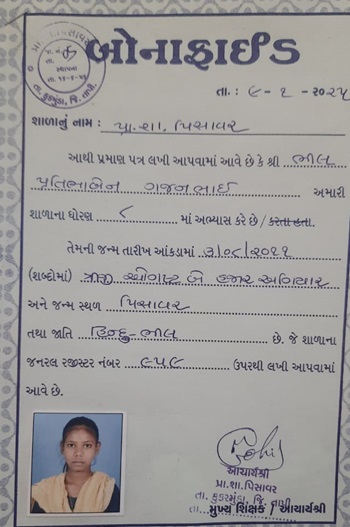 બોનાફાઈડ
તા. : ૯-૧-૨૦૨૫
શાળાનું નામ : પ્રા. શા. પિસાવર
આથી પ્રમાણ પત્ર લખી આપવામાં આવે છે કે શ્રી ભીલ
પ્રતિભાબેન ગજનભાઈ અમારી
શાળાના ધોરણ ૮ માં અભ્યાસ કરે છે / કરતા હતા.
તેમની જન્મ તારીખ આંકડામાં ૩/૦૮/૨૦૧૧
(શબ્દોમાં) ત્રીજી ઓગષ્ટ બે હજાર અગિયાર
અને જન્મ સ્થળ પિસાવર
તથા જાતિ હિન્દુ-ભીલ છે. જે શાળાના
જનરલ રજીસ્ટર નંબર ૯૫૯ ઉપરથી લખી આપવામાં
આવે છે.
આચાર્યશ્રી
પ્રા.શા.પિસાવર
તા. કુકરમુંડા, જિ. તાપી
મુખ્ય શિક્ષક / આચાર્યશ્રી